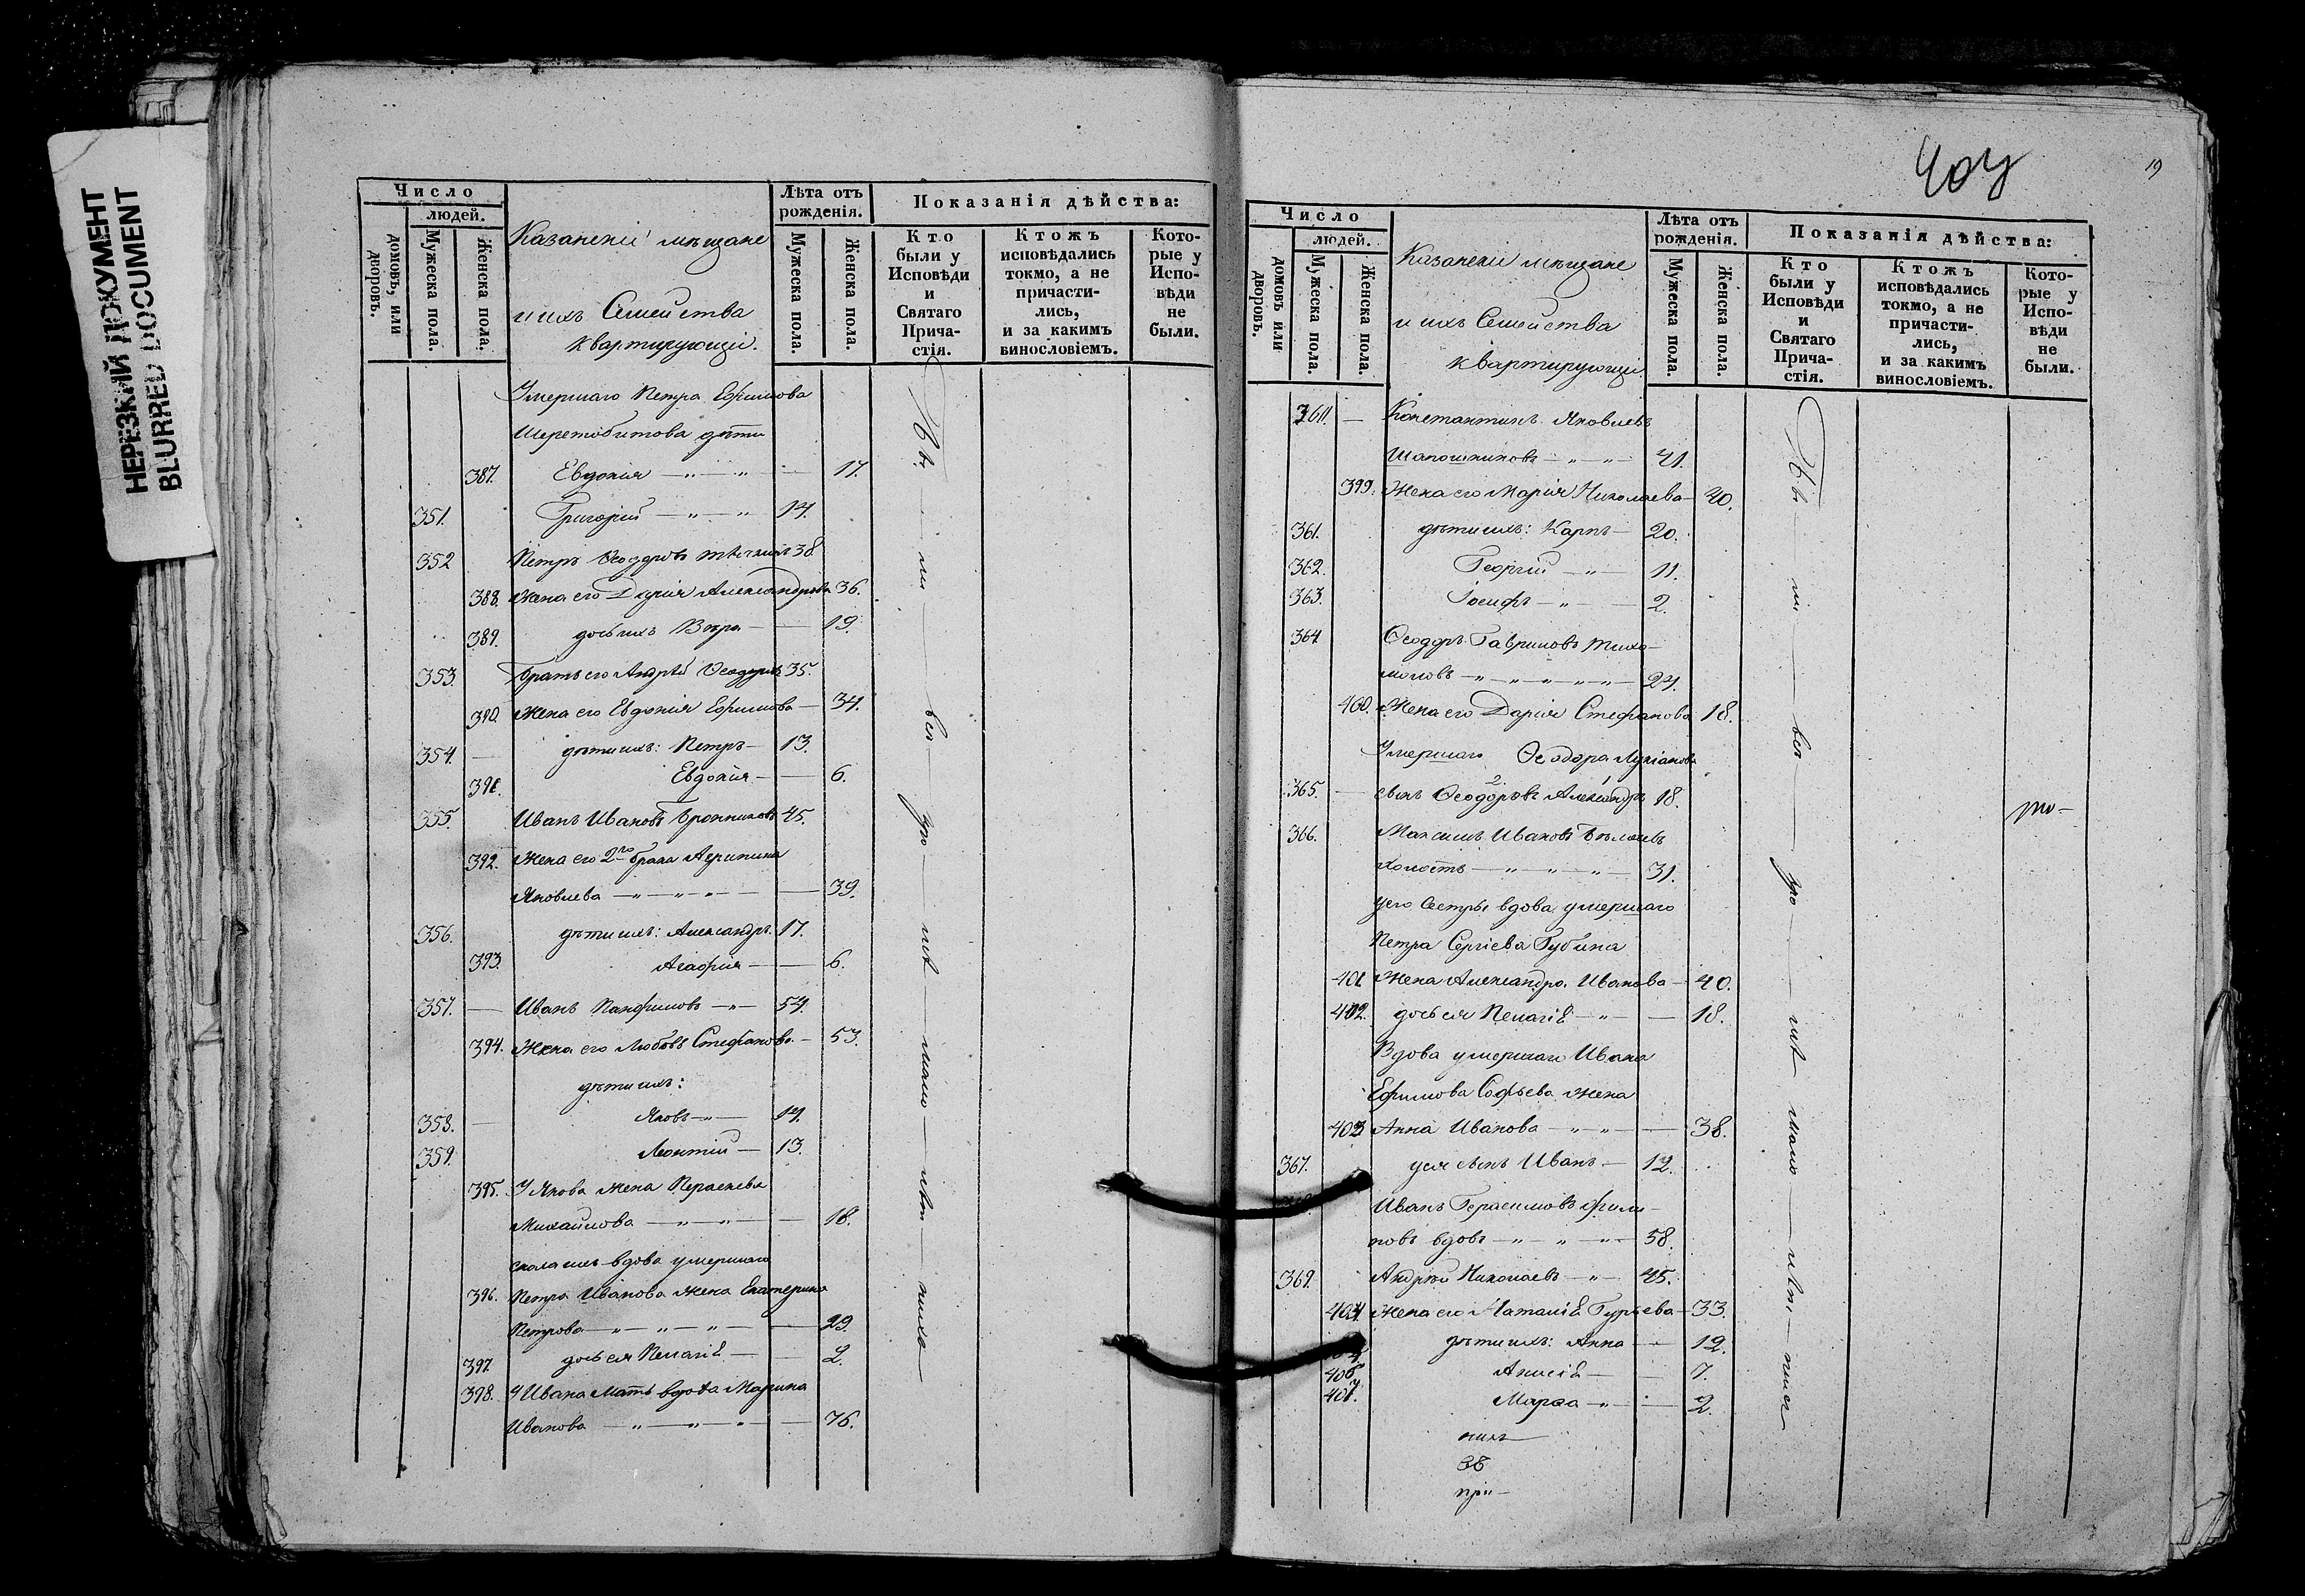 НЕРЕЗКИЙ ДОКУМЕНТ
BLURRED DOCUMENT
Число
людей.
домовъ, или дворовъ.
Мужеска пола.
Женска пола.
Казанскіи мѣщане
и ихъ Семейства
квартирующіи.
Лѣта отъ рожденія.
Мужеска пола.
Женска пола.
Показанія дѣйства:
Кто были у Исповѣди и Святаго Прича- стія.
Ктожъ исповѣдались токмо, а не причасти- лись, и за какимъ винословіемъ.
Кото- рые у Испо- вѣди не были.
Умершаго Петра Ефимова
дѣти
387. Евдокія — „ — „ — 17.
351. Григорій — „ — „ 14.
352 Петръ Ѳеодоровъ 38
388. Жена его Дарія Александрова 36.
389. дочь ихъ Вѣра — — 19.
353. Братъ его Андрей Ѳеодоровъ 35.
390. Жена его Евдокія Ефимова — 34.
354. — дѣти ихъ: Петръ — 13.
391. Евдокія — — 6.
355. Иванъ Ивановъ Бронниковъ 45.
392. Жена его 2го брака Агрипина
Яковлева — „ — „ — „ — — 39.
356. дѣти ихъ: Александръ 17.
393. Агафія — — 6.
357. — Иванъ Панфиловъ — „ — 54.
394. Жена его Любовь Стефанова — 53.
дѣти ихъ:
358. — Яковъ — „ — 14.
359. Леонтій — 13.
395. У Якова жена Параскева
Михайлова — „ — „ — — 18.
вдова умершаго
396. Петра Иванова жена Екатерина
Петрова — „ — „ — „ — — 29.
397 дочь ея Пелагія — — 2.
398. У Ивана Мать вдова Марина
Иванова — „ — „ — „ — 76.
19
Число
людей.
домовъ или дворовъ.
Мужеска пола.
Женска пола.
Казанскіи мѣщане
и ихъ Семейства
квартирующіи
Лѣта отъ рожденія.
Мужеска пола.
Женска пола.
Показанія дѣйства:
Кто были у Исповѣди и Святаго Прича- стія.
Ктожъ исповѣдались токмо, а не причасти- лись, и за какимъ винословіемъ.
Кото- рые у Испо- вѣди не были.
— Константинъ Яковлевъ
Шапошниковъ — „ — „ — 41.
399. Жена его Марія Николаева — 40.
361. дѣти ихъ: Карпъ — 20.
362. Георгій — „ — 11.
363. Іосифъ — „ — 2.
364 Ѳеодоръ Гавриловъ Тихо-
моловъ — „ — „ — „ — „ — „ — 24.
400. Жена его Дарія Стефанова 18.
Умершаго Ѳеодора Лукіанова
365. — сынъ Ѳеодоровъ Александръ 18.
366. Максимъ Ивановъ
холостъ — „ — „ — „ — 31.
у его Сестры вдова умершаго
Петра Сергіева Губина
401 Жена Александра Иванова — 40.
402. дочь ея Пелагія — „ — — 18.
Вдова умершаго Ивана
Ефимова Софьева жена
403 Анна Иванова — „ — „ — — 38.
367. у ея сынъ Иванъ — 12.
Иванъ Герасимовъ Фили-
повъ вдовъ — „ — „ — „ — 58.
369. Андрей Николаевъ — „ — 45.
404 Жена его Наталія Гурьева — 33.
дѣти ихъ: Анна — 12.
406 Анисія — — 7.
407. Марѳа — „ — — 2.